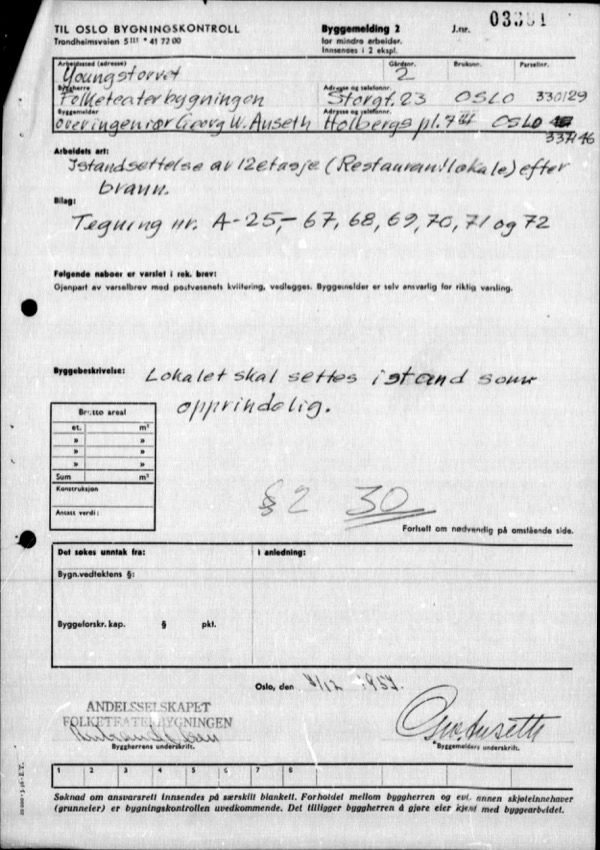 TIL OSLO BYGNINGSKONTROLL
Trondheimsveien 5 III * 41 72 00
Byggemelding 2
for mindre arbeider.
Innsendes i 2 ekspl.
J.nr.
Arbeidssted (adresse)
Gårdsnr.
Bruksnr.
Parsellnr.
Youngstorvet
2
Byggherre
Adresse og telefonnr.
Folketeaterbygningen
Storgt. 23 OSLO 330129
Byggemelder
Adresse og telefonnr.
Overingeniør Georg W. Auseth
Holbergs pl. OSLO
337146
Arbeidets art:
Istandsettelse av 12 etasje (Restaurantlokale) efter
brann.
Bilag:
Tegning nr. A-25,- 67, 68, 69, 70, 71 og 72
Følgende naboer er varslet i rek. brev:
Gjenpart av varselbrev med postvesenets kvittering, vedlegges. Byggemelder er selv ansvarlig for riktig varsling.
Byggebeskrivelse:
Lokalet skal settes istand som
opprindelig.
Brutto areal
et. m²
» »
» »
» »
Sum m²
Konstruksjon
Ansatt verdi:
§ 2 30
Fortsett om nødvendig på omstående side.
Det søkes unntak fra:
I anledning:
Bygn.vedtektens §:
Byggeforskr. kap. § pkt.
Oslo, den /12 1957.
ANDELSSELSKAPET
FOLKETEATERBYGNINGEN
Byggherrens underskrift.
Byggemelders underskrift.
1 2 3 4 5 6 7 8
Søknad om ansvarsrett innsendes på særskilt blankett. Forholdet mellom byggherren og evt. annen skjøteinnehaver
(grunneier) er bygningskontrollen uvedkommende. Det tilligger byggherren å gjøre eier kjent med byggearbeidet.